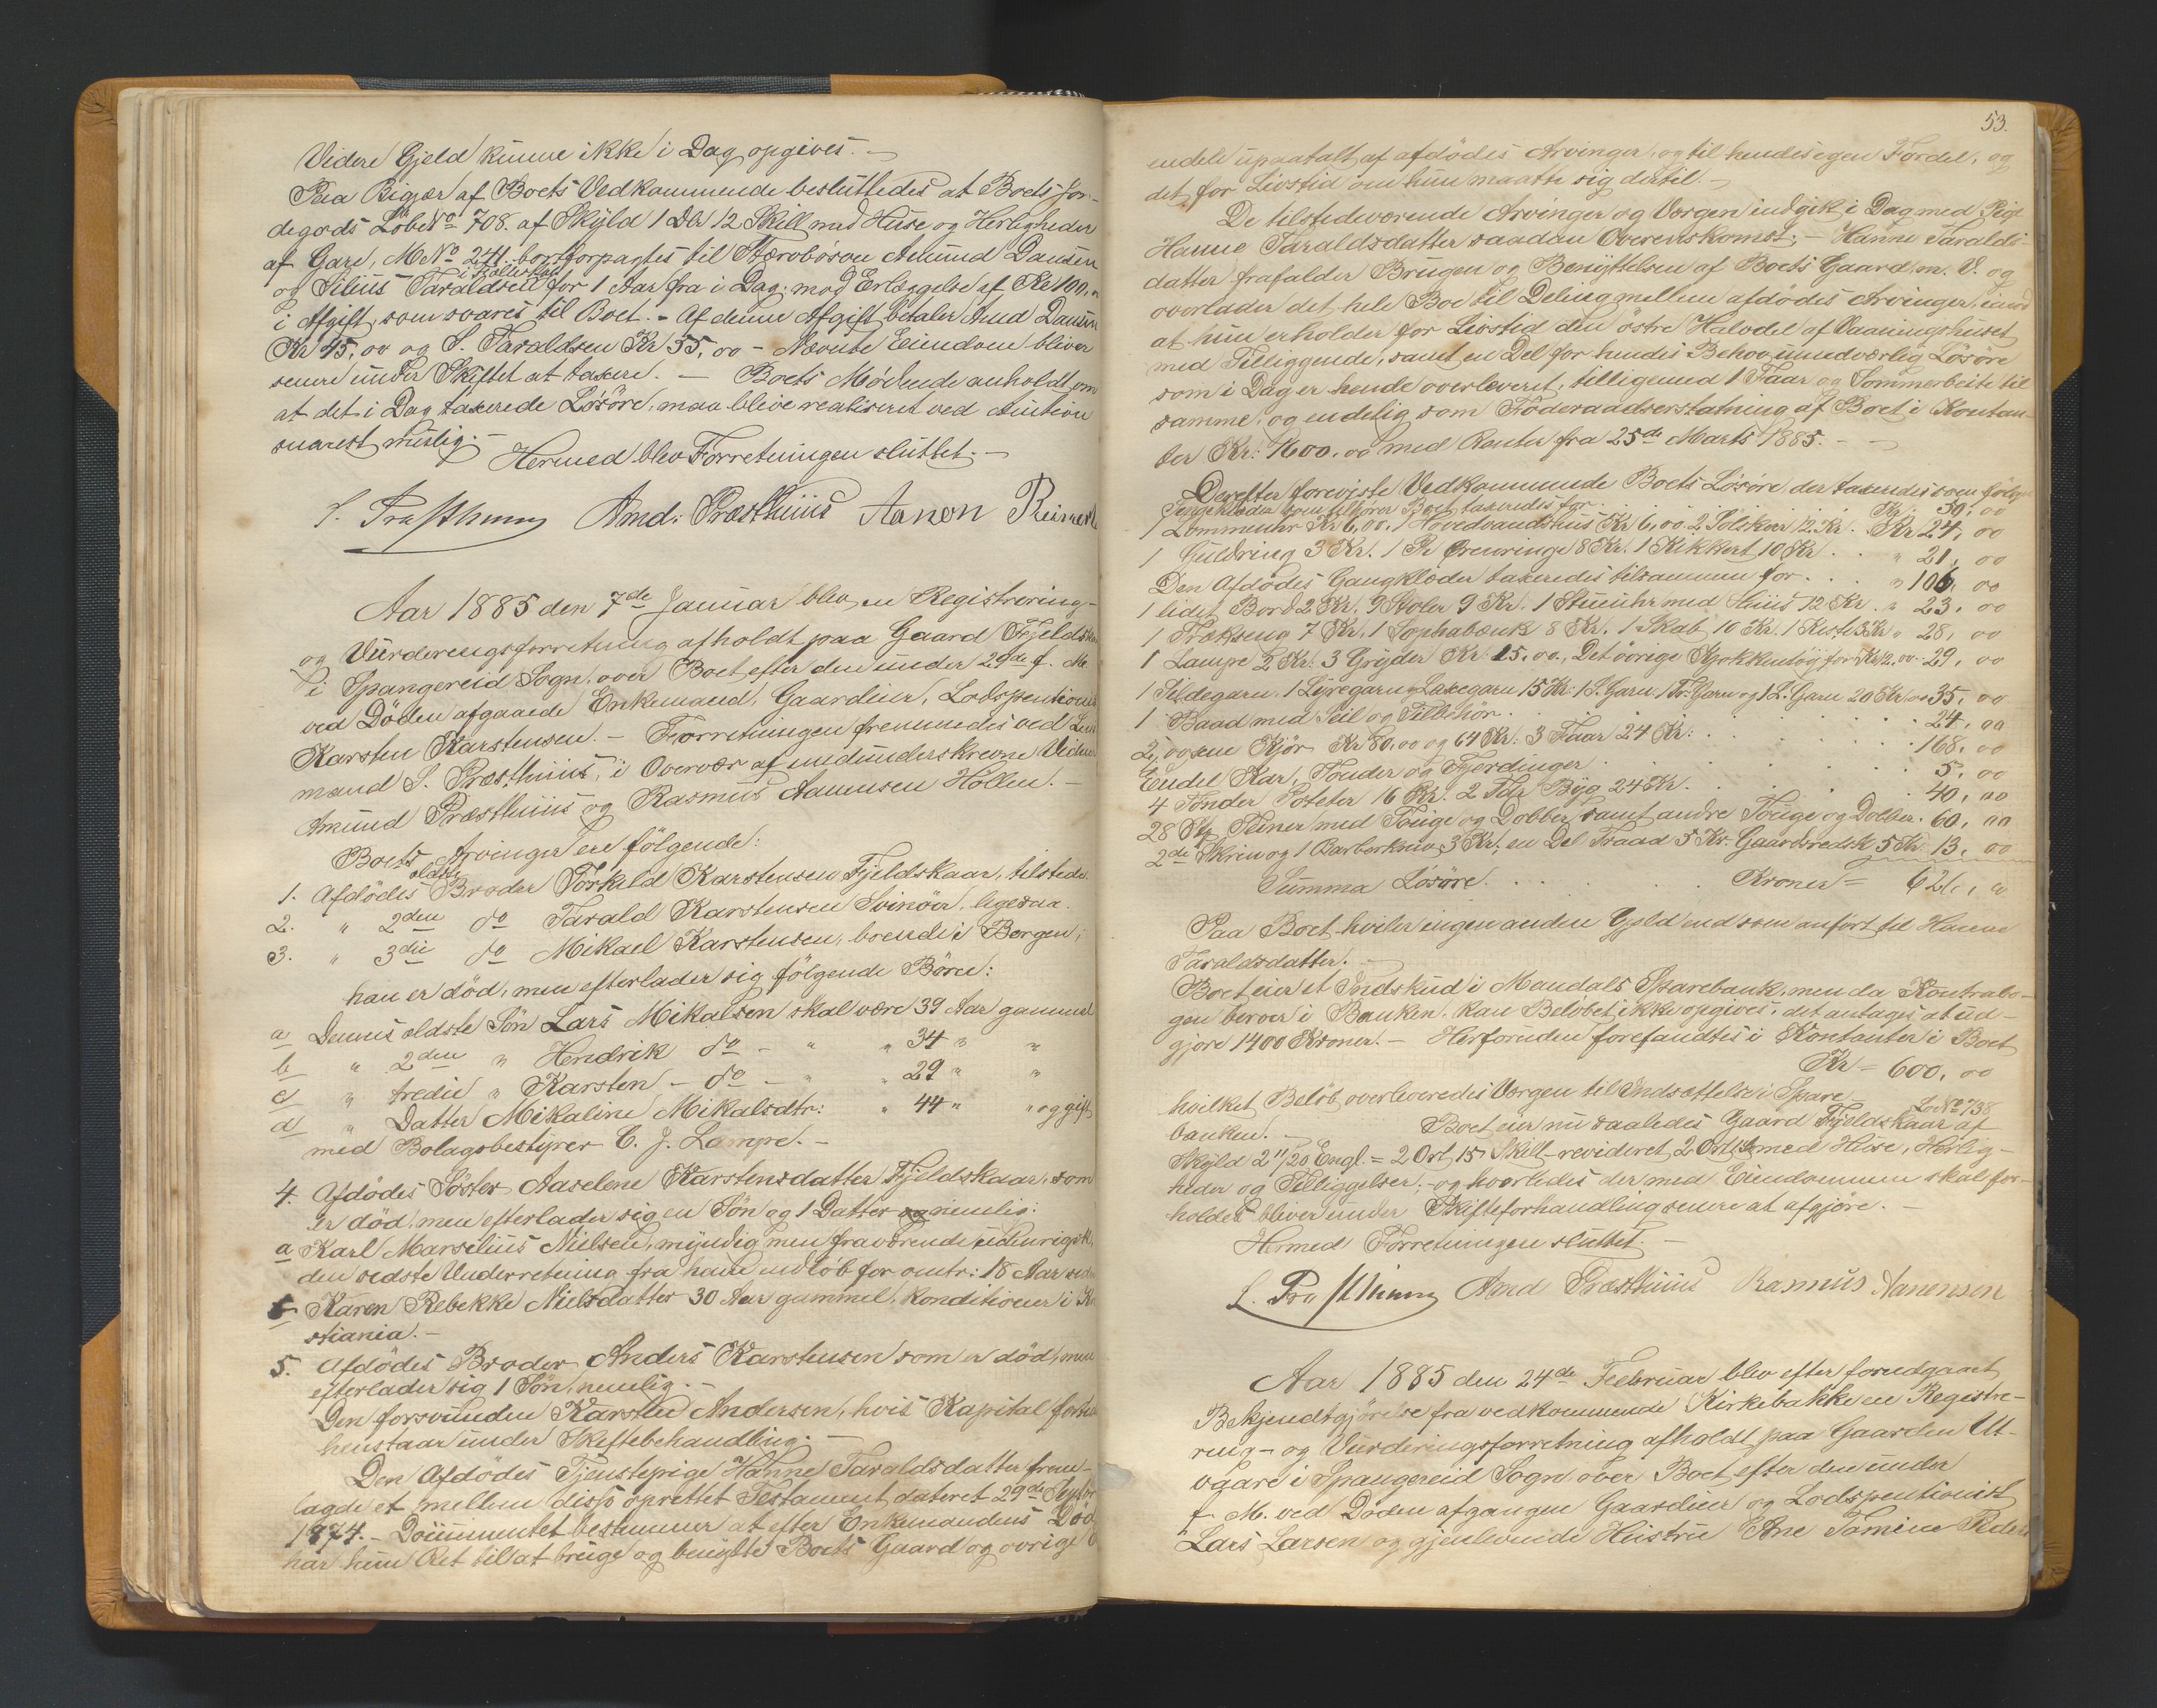 Videre Gjeld kunne ikke i Dag opgives. —
Paa Bigjær af Boets Vedkommende besluttedes at Boets Jor-
degods Løbe No 708. af Skyld 1 Dlr 12 Skill med Huse og Herligheder
af Gare, M No 241. bortforpagtes til Størobøren Amund Dansen
i Fjellerhal
og Silius Taraldsen for 1 Aar fra i Dag, mod Erlæggelse af Kr 100,
i Afgift, som svares til Boet. - Af denne Afgift betaler Amd Dansen
Kr 45,00 og S. Taraldsen Kr 55,00 - Nævnte Eiendom bliver
senere under Skiftet at taxere. — Boets Mødende anholdt om
at det i Dag taxerede Løsøre, maa blive realiseret ved Auktion
snarest mulig. -
Hermed blev Forretningen sluttet. -
S. Præsthuus Amd. Præsthuus Aanon Reinert
Aar 1885 den 7de Januar blev en Registrering-
og Vurderingsforretning afholdt paa Gaard Fjeldskaar
i Spangereid Sogn, over Boet efter den under 29de f. M.
ved Døden afgaaede Enkemand, Gaardeier, Lodspentionist
Karsten Karstensen. - Forretningen fremmedes ved Lens
mand S. Præsthuus, i Overvær af medunderskrevne Vidner
Amund Præsthuus og Rasmus Aanensen Høllen. -
Boets Arvinger ere følgende:
ældste
1. Afdødes Broder Torkild Karstensen Fjeldskaar, tilstede.
2. " 2den do Tarald Karstensen Svinøer, ligesaa.
3. " 3die do Mikael Karstensen, boende i Bergen;
han er død, men efterlader sig følgende Børn:
a Dennes ældste Søn Lars Mikalsen skal være 39 Aar gammel
b " 2den " Hendrik do - " " 34 " "
c " tredie " Karsten - do - " " 29 " "
d " Datter Mikaline Mikalsdtr: " 44 " " og gift
med Bolagsbestyrer C. J. Lampe. -
4. Afdødes Søster Aaselene Karstensdatter Fjeldskaar, som
er død, men efterlader sig en Søn og 1 Datter og nemlig:
a Karl Marselius Nielsen, myndig men fraværende udenrigsk,
den sidste Underretning fra ham indløb for omtr: 18 Aar siden
b Karen Rebekke Nielsdatter 30 Aar gammel, konditioner i Kri
stiania. -
5. Afdødes Broder Anders Karstensen som er død, men
efterlader sig 1 Søn, nemlig. -
Den forsvunden Karsten Andersen, hvis Kapital
henstaar under Skiftebehandling. -
Den Afdødes Tjenstepige Hanne Taraldsdatter frem-
lagde et mellem disse oprettet Testament, dateret 29de Septbr
1874. - Documentet bestemmer at efter Enkemandens Død
har hun Ret til at bruge og benytte Boets Gaard og øvrige
53.
endele upaatalt af afdødes Arvinger, og til hendes egen Fordel, og
det for Livstid om hun maatte sig dertil -
De tilstedeværende Arvinger og Værgen indgik i Dag med Pige
Hanne Taraldsdatter saadan Overenskomst; - Hanne Taralds-
datter frafalder Brugen og Benyttelsen af Boets Gaard m. V. og
overlader det hele Boe til Deling mellem afdødes Arvinger, imod
at hun erholder for Livstid den østre Halvdel af Vaaningshuset
med Tilliggende, samt en Del for hendes Behov unødværlig Løsøre
som i Dag er hende overleveret, tilligemed 1 Faar og Sommerbeite til
samme, og endelig som Føderaadserstatning af Boet i Kontan-
ter Kr: 1600,00 med Renter fra 25de Marts 1885. -
Derefter foreviste Vedkommende Boets Løsøre, der taxeredes som følger
Sengeklæder som tilhører Boet taxeredes for . . . Kr: 50,00
1 Lommeuhr Kr 6,00. 1 Hovedvandshus Kr 6,00. 2 Sølskeer 12 Kr. Kr 24,00
1 Guldring 3 Kr. 1 Pr Ørenringe 8 Kr. 1 Kikkert 10 Kr . . " 21,00
Den Afdødes Gangklæder taxeredes tilsammen for . . . " 106,00
1 lidet Bord 2 Kr. 9 Stoler 9 Kr. 1 Stueuhr med Huus 12 Kr. " 23,00
1 Trækseng 7 Kr. 1 Sophabænk 8 Kr. 1 Skab 10 Kr. 1 Kiste 3 Kr " 28,00
1 Lampe 2 Kr: 3 Gryder Kr: 15,00, Det øvrige Kjøkkentøy for Kr 12,00 29,00
1 Sildegarn. 1 Lyregarn Laxegarn 15 Kr: 1 S. Garn 1 Tr. Garn og 1 L. Garn 20 Kr 35,00
1 Baad med Seil og Tilbehør . . . 24,00
2, voxne Kjør, Kr 80,00 og 64 Kr: 3 Faar 24 Kr: . . 168,00
Eendel Kar, Tønder og Fjerdinger . . . 5,00
4 Tønder Poteter 16 Kr. 2 Tdr Byg 24 Kr. . . 40,00
28 Stk Teiner med Touge og Dobber, samt andre Touge og Dobber. 60,00
2de Skrin og 1 Barberkniv 3 Kr; en Del Traad 5 Kr. Gaardsredsk 5 Kr 13,00
Summa Løsøre . . . Kroner = 626,00
Paa Boet hviler ingen anden Gjeld end som anført til Hanne
Taraldsdatter. -
Boet eier et Indskud i Mandals Sparebank, men da Kontrabo-
gen beroer i Banken, kan Beløbet ikke opgives, det antages at ud-
gjøre 1400 Kroner. - Herforuden forefandtes i Kontanter i Boet
Kr = 600,00
hvilket Beløb overleveredes Værgen til Indsættelse i Spare-
banken. - Boet eier nu saaledes Gaard Fjeldskaar af Lo No 738
Skyld 2 11/20 Engl. = 2 Ort 15 Skill - revideret 2 Ort med Huse, Herlig-
heder og Tilliggelser, - og hvorledes der med Eiendommen skal for-
holdes bliver under Skifteforhandling senere at afgjøre. -
Hermed Forretningen sluttet. -
S. Præsthuus Amd Præsthuus Rasmus Aanensen
Aar 1885 den 24de Februar blev efter forudgaaet
Bekjendtgjørelse fra vedkommende Kirkebakke en Registre-
ring- og Vurderingsforretning afholdt paa Gaarden Ut-
vaare i Spangereid Sogn over Boet efter den under
f. M. ved Døden afgangne Gaardeier og Lodspentionist
Lars Larsen og gjenlevende Hustru Ane Tomine Peders